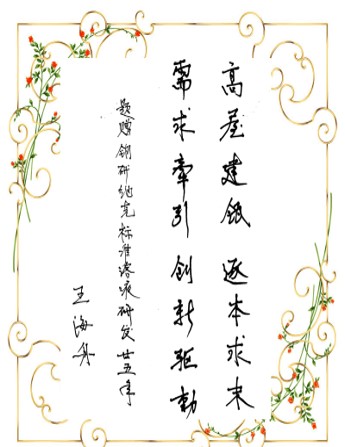 高屋建瓴 逐本求末
需求牽引 创新驱動
题赠钢研纳克标准溶液研发廿五年
王海舟